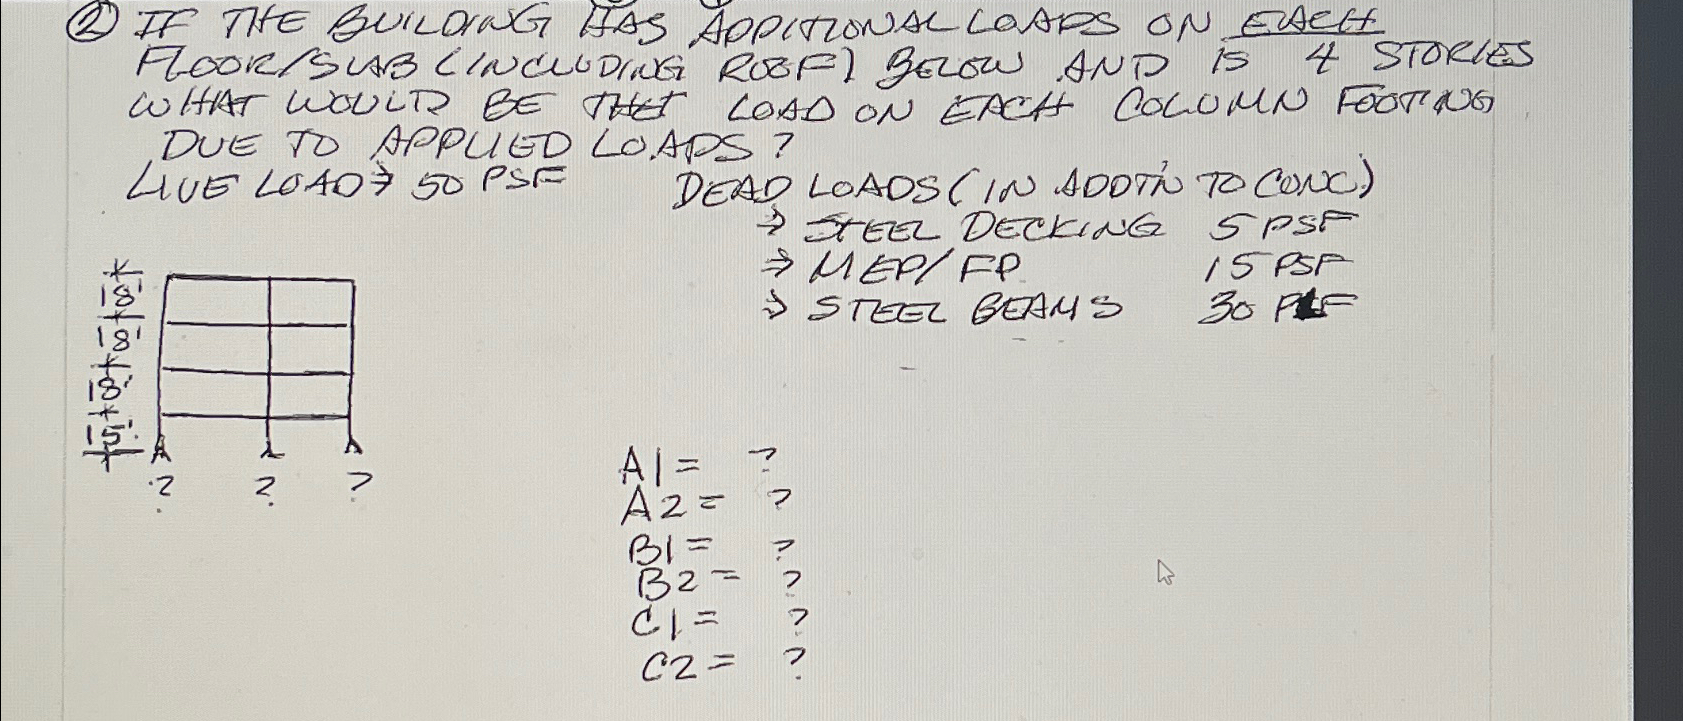 ② IF THE BUILDING HAS ADDITIONAL LOADS ON EACH
FLOOR/SLAB (INCLUDING ROOF) BELOW AND IS 4 STORIES
WHAT WOULD BE THE LOAD ON EACH COLUMN FOOTING
DUE TO APPLIED LOADS?
LIVE LOAD → 50 PSF
DEAD LOADS (IN ADDT'N TO CONC.)
→ STEEL DECKING 5 PSF
→ MEP/FP 15 PSF
→ STEEL BEAMS 30 PLF
18'
18'
18'
15'
? ? ?
A1 = ?
A2 = ?
B1 = ?
B2 = ?
C1 = ?
C2 = ?